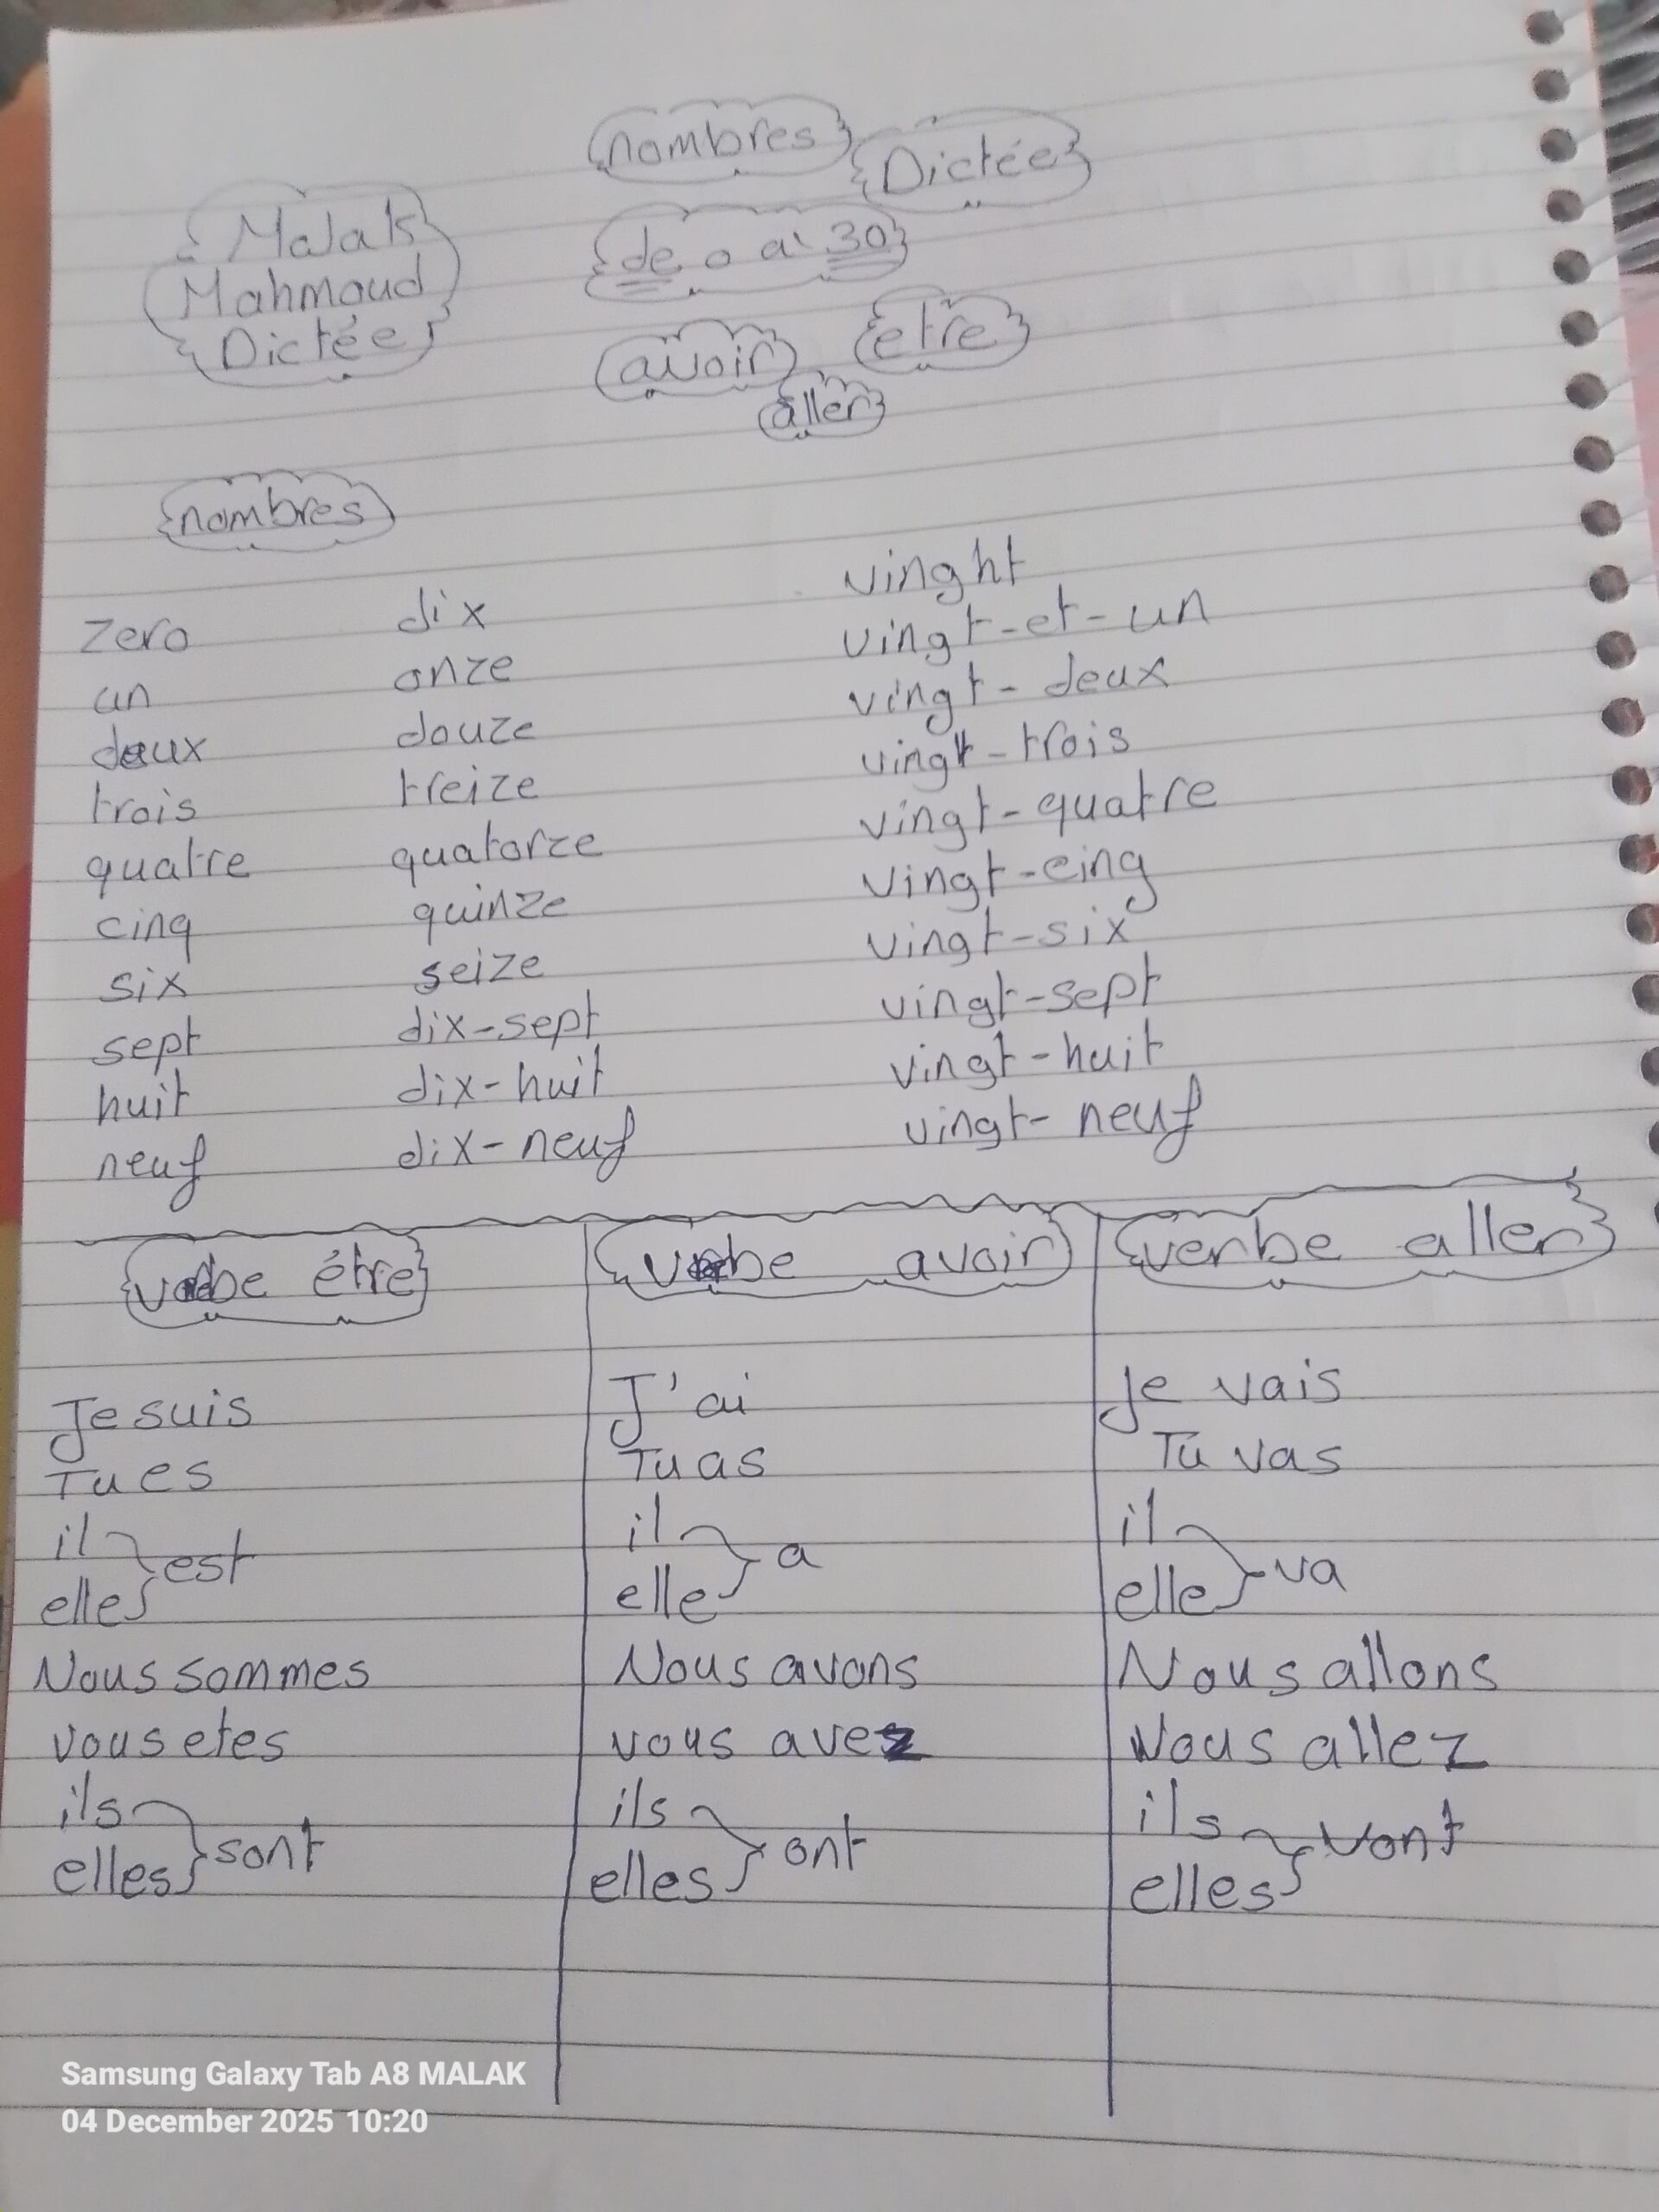 nombres
Dictée
Malak
Mahmoud
Dictée
de 0 à 30
avoir
etre
aller
nombres
zero
un
deux
trois
quatre
cinq
six
sept
huit
neuf
dix
onze
douze
treize
quatorze
quinze
seize
dix-sept
dix-huit
dix-neuf
vinght
vingt-et-un
vingt-deux
vingt-trois
vingt-quatre
vingt-cinq
vingt-six
vingt-sept
vingt-huit
vingt-neuf
verbe étre
Je suis
Tu es
il
elle
est
Nous sommes
vous etes
ils
elles
sont
verbe avoir
J'ai
Tu as
il
elle
a
Nous avons
vous avez
ils
elles
ont
verbe aller
Je vais
Tu vas
il
elle
va
Nous allons
Vous allez
ils
elles
vont
Samsung Galaxy Tab A8 MALAK
04 December 2025 10:20